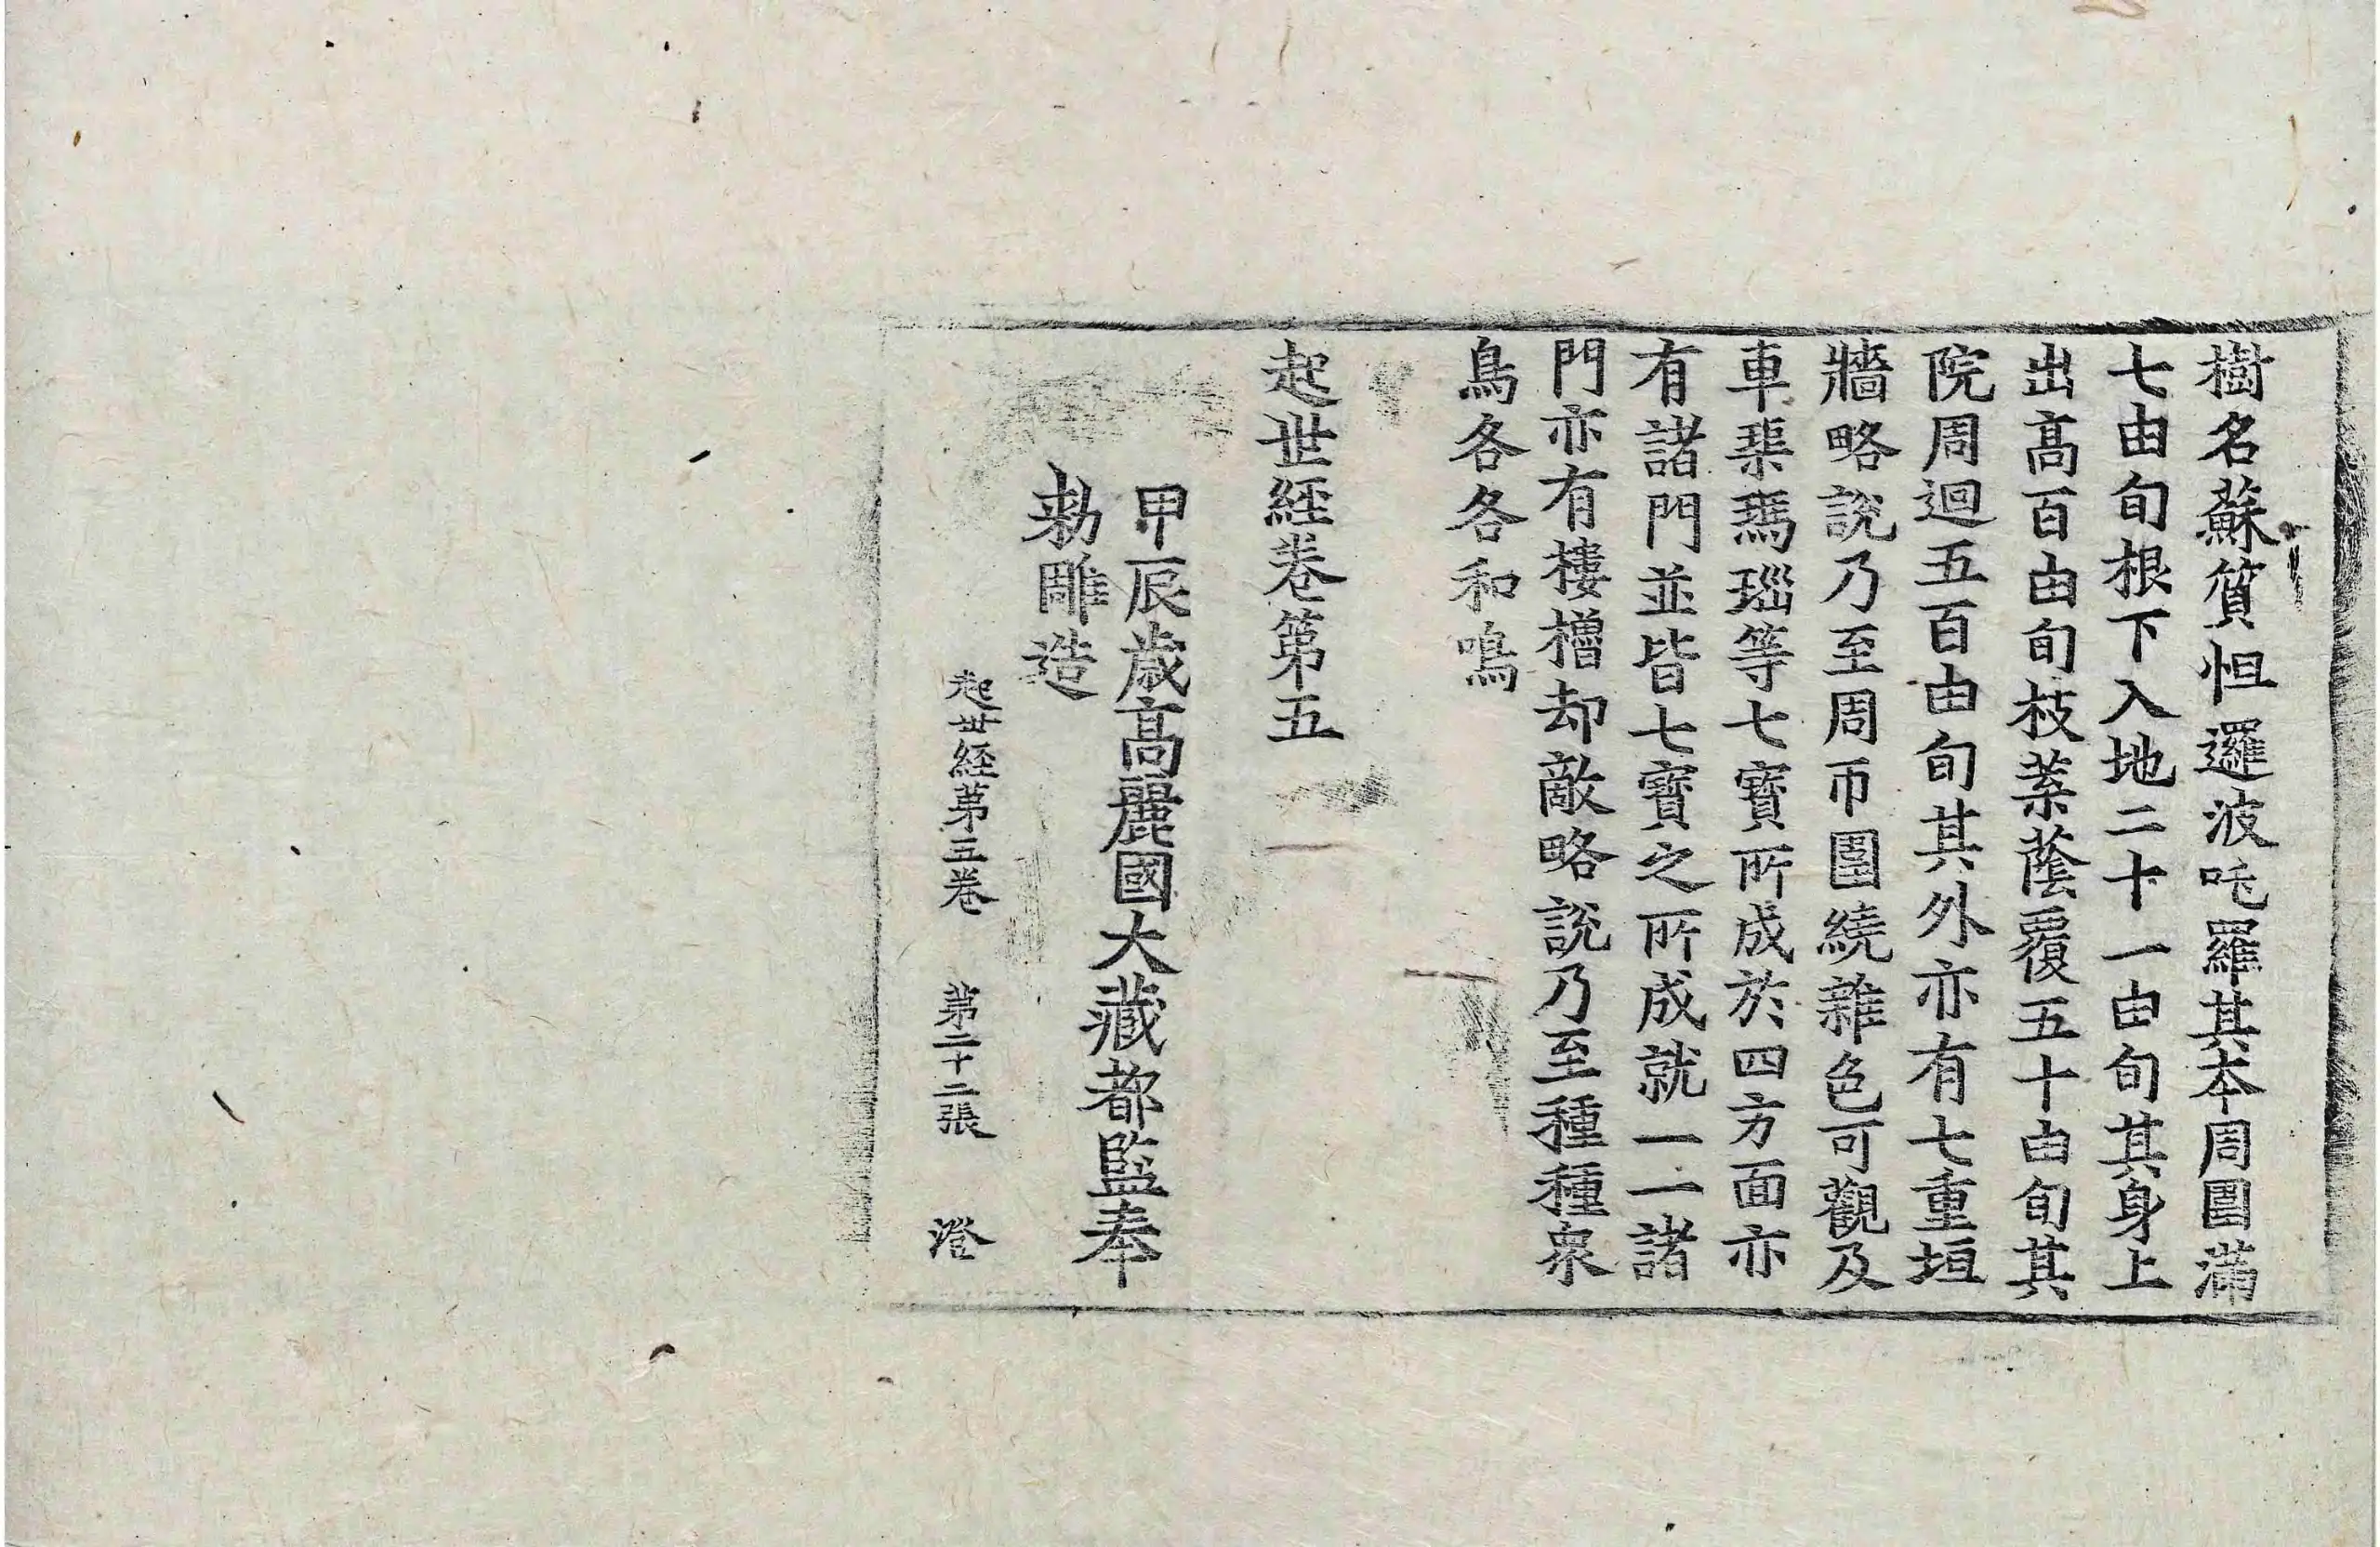 樹名蘇質怛邏波吒羅其本周圍滿
七由旬根下入地二十一由旬其身上
出高百由旬枝葉蔭覆五十由旬其
院周迴五百由旬其外亦有七重垣
牆略說乃至周帀圍繞雜色可觀及
車𤦲瑪瑙等七寶所成於四方面亦
有諸門並皆七寶之所成就一一諸
門亦有樓櫓却敵略說乃至種種衆
鳥各各和鳴
起世經卷第五
甲辰歲高麗國大藏都監奉
勑雕造
起世經第五卷 第二十二張 澄